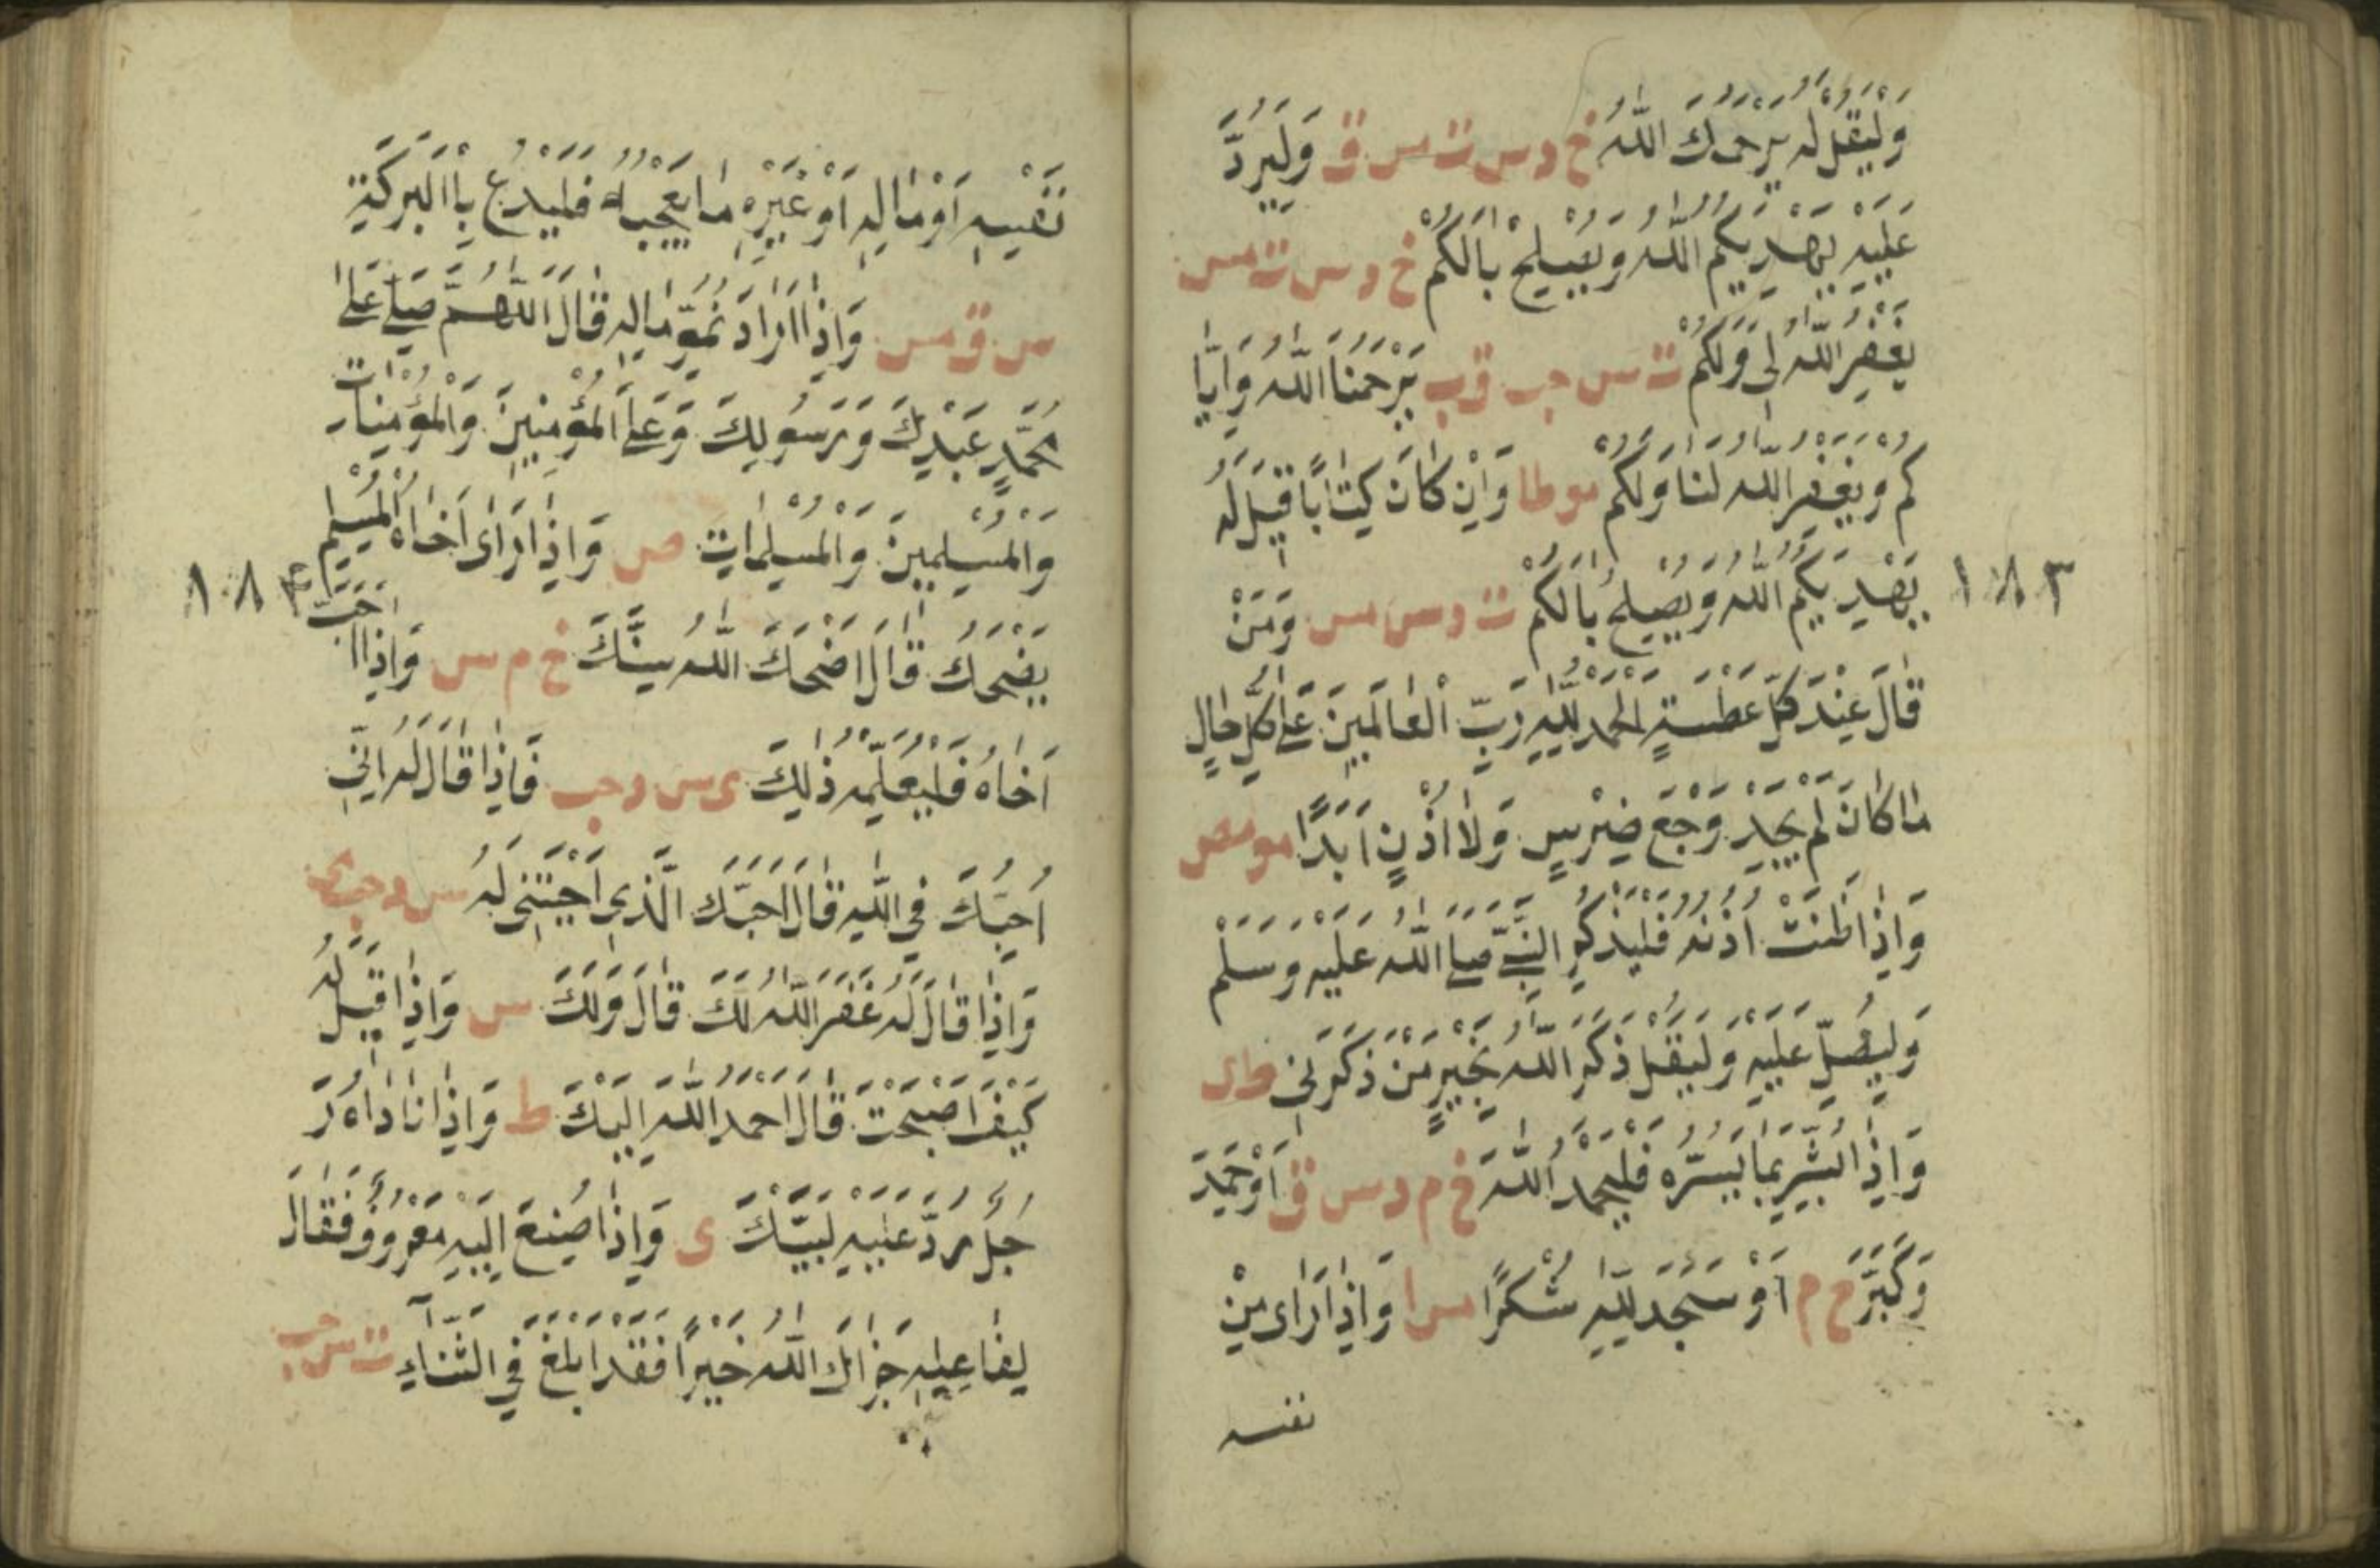 وَلْيَقُلْ لَهُ يَرْحَمُكَ اللّٰهُ خ د س ت مس ق وَلْيَرُدَّ
عَلَيْهِ يَهْدِيكُمُ اللّٰهُ وَيُصْلِحْ بَالَكُمْ خ د س ت مس
يَغْفِرُ اللّٰهُ لِي وَلَكُمْ ت س حب ق ى يَرْحَمُنَا اللّٰهُ وَاِيَّا
كُمْ وَيَغْفِرُ اللّٰهُ لَنَا وَلَكُمْ مو طا وَاِنْ كَانَ كِتَابًا قِيلَ لَهُ
١٨٣
يَهْدِيكُمُ اللّٰهُ وَيُصْلِحُ بَالَكُمْ ت د س مس وَمَنْ
قَالَ عِنْدَ كُلِّ عَطْسَةٍ الْحَمْدُ لِلّٰهِ رَبِّ الْعَالَمِينَ عَلٰى كُلِّ حَالٍ
مَا كَانَ لَمْ يَجِدْ وَجَعَ ضِرْسٍ وَلَا اُذُنٍ اَبَدًا مو مص
وَاِذَا طَنَّتْ اُذُنُهُ فَلْيَذْكُرِ النَّبِيَّ صَلَّى اللّٰهُ عَلَيْهِ وَسَلَّمْ
وَلْيُصَلِّ عَلَيْهِ وَلْيَقُلْ ذَكَرَ اللّٰهُ بِخَيْرٍ مَنْ ذَكَرَنِي ط ى
وَاِذَا بُشِّرَ بِمَا يَسُرُّهُ فَلْيَحْمَدُ اللّٰهَ خ م د س ق اَوْ حَمِدَ
وَكَبَّرَ خ م اَوْ سَجَدَ لِلّٰهِ شُكْرًا مس ا وَاِذَا رَاٰى مِنْ
نفسه
نَفْسِهِ اَوْ مَالِهِ اَوْ غَيْرِهِ مَا يُعْجِبُهُ فَلْيَدْعُ بِالْبَرَكَةِ
س ق مس وَاِذَا اَرَادَ نُمُوَّ مَالِهِ قَالَ اَللّٰهُمَّ صَلِّ عَلٰى
مُحَمَّدٍ عَبْدِكَ وَرَسُولِكَ وَعَلَى الْمُؤْمِنِينَ وَالْمُؤْمِنَاتِ
وَالْمُسْلِمِينَ وَالْمُسْلِمَاتِ ص وَاِذَا رَاٰى اَخَاهُ الْمُسْلِمَ
١٨٤
يَضْحَكُ قَالَ اَضْحَكَ اللّٰهُ سِنَّكَ خ م س وَاِذَا اَحَبَّ
اَخَاهُ فَلْيُعْلِمْهُ ذٰلِكَ ى س د حب فَاِذَا قَالَ لَهُ اِنِّي
اُحِبُّكَ فِي اللّٰهِ قَالَ اَحَبَّكَ الَّذِي اَحْبَبْتَنِي لَهُ س د حب ى
وَاِذَا قَالَ لَهُ غَفَرَ اللّٰهُ لَكَ قَالَ وَلَكَ س وَاِذَا قِيلَ لَهُ
كَيْفَ اَصْبَحْتَ قَالَ اَحْمَدُ اللّٰهَ اِلَيْكَ ط وَاِذَا نَادَاهُ رَ
جُلٌ رَدَّ عَلَيْهِ لَبَّيْكَ ى وَاِذَا صُنِعَ اِلَيْهِ مَعْرُوفٌ فَقَالَ
لِفَاعِلِهِ جَزَاكَ اللّٰهُ خَيْرًا فَقَدْ اَبْلَغَ فِي الثَّنَاءِ ت س حب